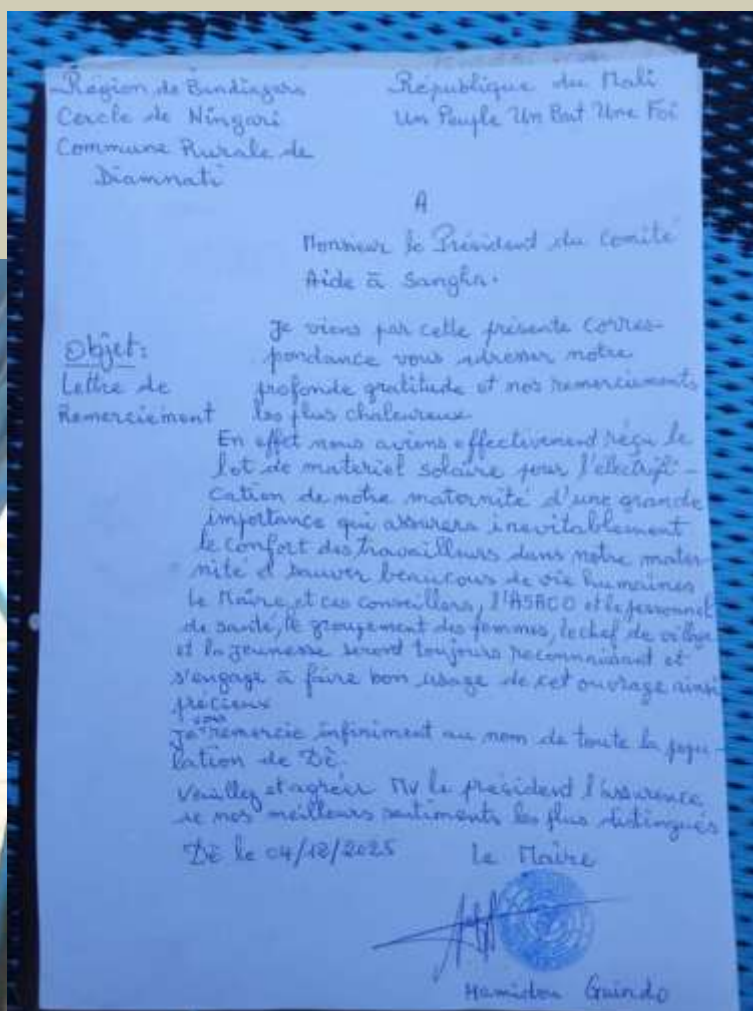 Région de Bandiagara
Cercle de Ningari
Commune Rurale de
Diamnati
République du Mali
Un Peuple Un But Une Foi
A
Monsieur le Président du Comité
Aide à Sangha.
Objet:
Lettre de
Remerciement
Je viens par cette présente Corres-
pondance vous adresser notre
profonde gratitude et nos remerciements
les plus chaleureux
En effet nous avions effectivement réçu le
lot de materiel solaire pour l'électrifi-
cation de notre maternité d'une grande
importance qui assurera inevitablement
le confort des travailleurs dans notre mater-
nité et sauver beaucous de vie humaines
Le Maire et ces conseillers, l'ASACO et le personnel
de santé, le groupement des femmes, le chef de village
et la jeunesse seront toujours reconnaissant et
s'engage à faire bon usage de cet ouvrage ainsi
précieux
je vous remercie infiniment au nom de toute la popu-
lation de Dè.
Veuillez et agréer Mr le président l'assurence
de nos meilleurs sentiments les plus distingués
Dè le 04/12/2025
Le Maire
Hamidou Guindo